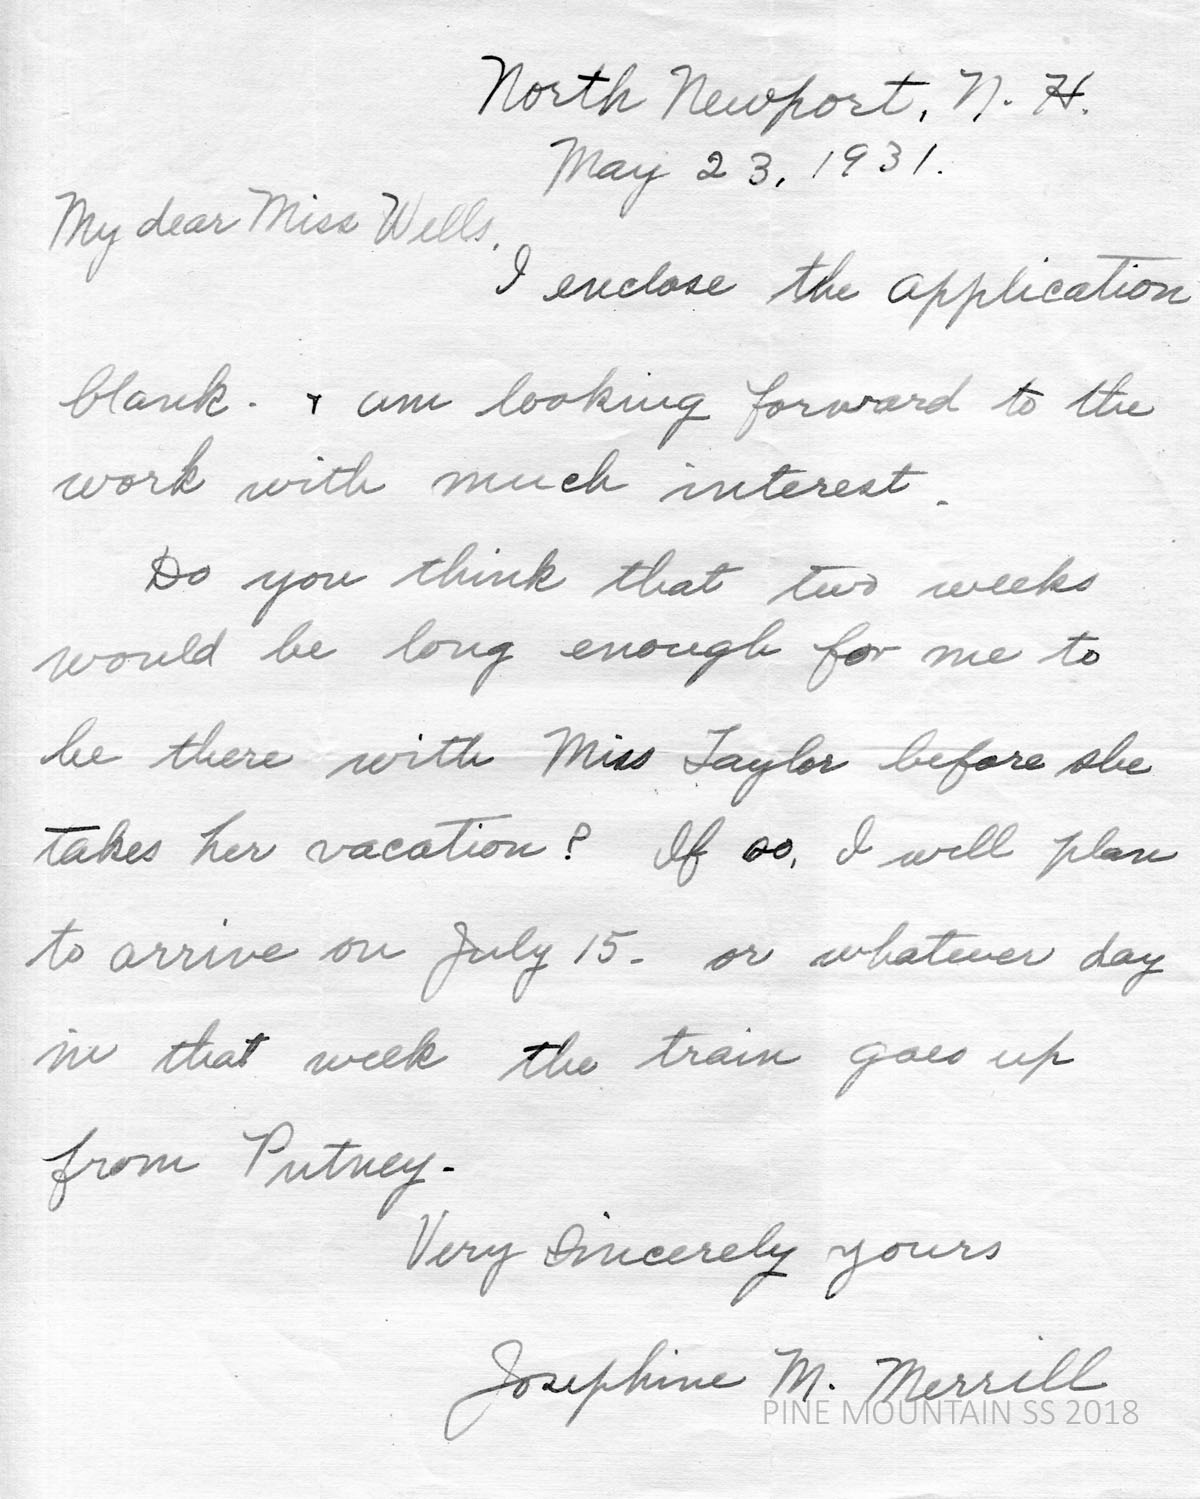 North Newport, N. H.
May 23, 1931.
My dear Miss Wells,
I enclose the application
blank. & am looking forward to the
work with much interest.
Do you think that two weeks
would be long enough for me to
be there with Miss Taylor before she
takes her vacation? If so, I will plan
to arrive on July 15. or whatever day
in that week the train goes up
from Putney.
Very Sincerely yours
Josephine M. Merrill
PINE MOUNTAIN SS 2018